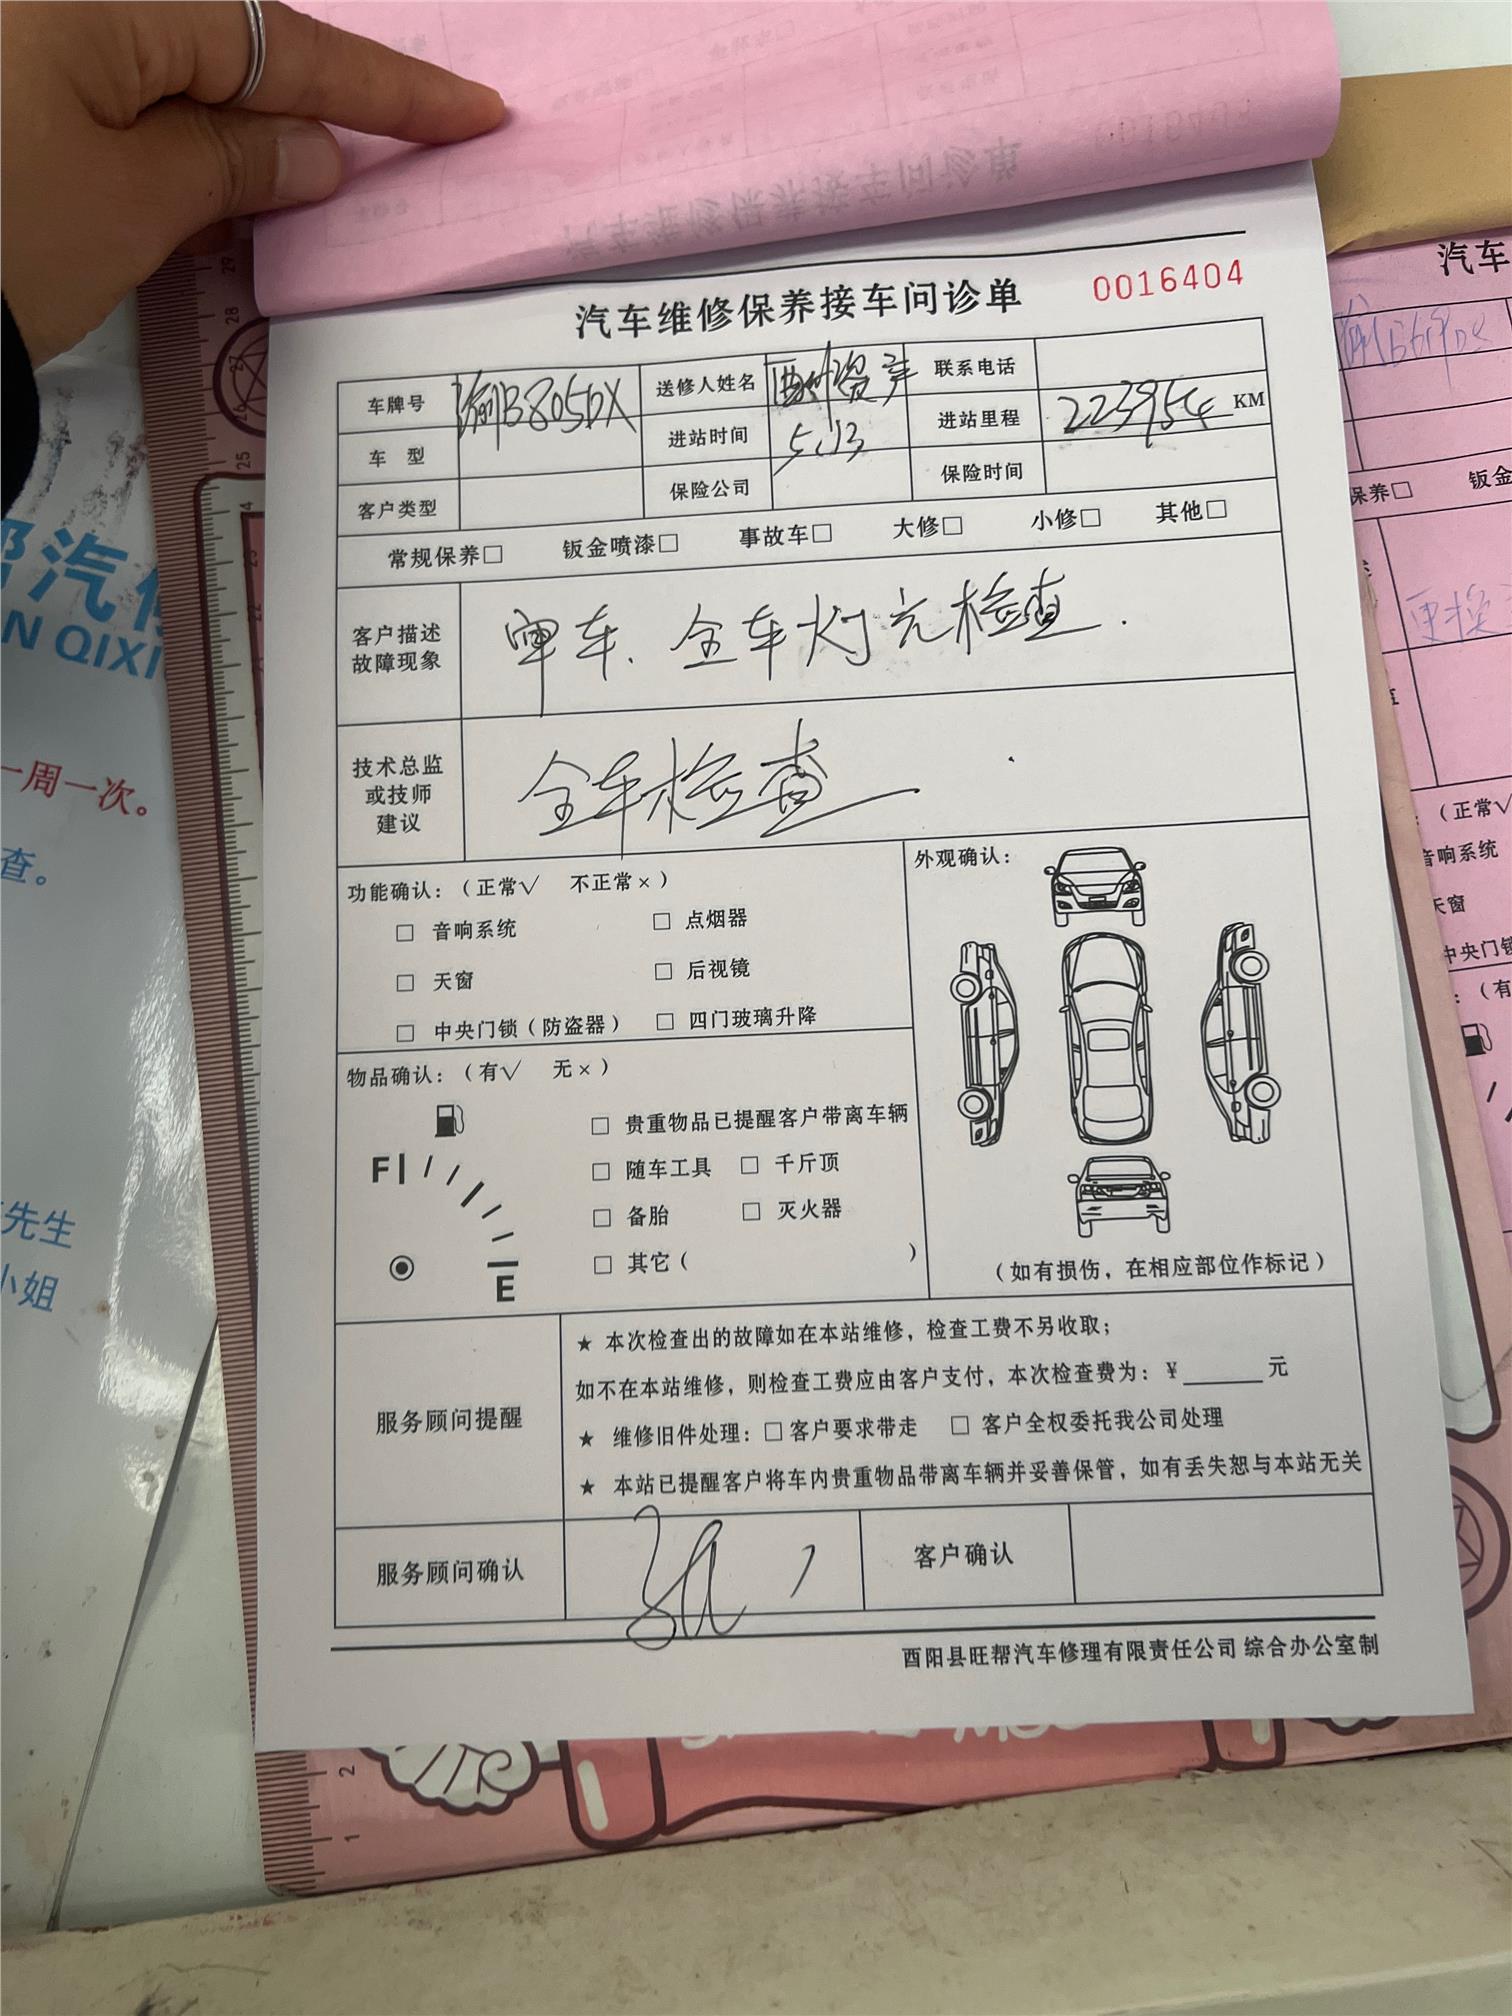 汽车维修保养接车问诊单 0016404
车牌号 渝B805DX 送修人姓名 酉州资产 联系电话
车 型 进站时间 5.13 进站里程 223954 KM
客户类型 保险公司 保险时间
常规保养□ 钣金喷漆□ 事故车□ 大修□ 小修□ 其他□
客户描述
故障现象
审车、全车灯光检查.
技术总监
或技师
建议
全车检查
功能确认：（正常√ 不正常×）
□ 音响系统 □ 点烟器
□ 天窗 □ 后视镜
□ 中央门锁（防盗器） □ 四门玻璃升降
外观确认：
（如有损伤，在相应部位作标记）
物品确认：（有√ 无×）
F
E
□ 贵重物品已提醒客户带离车辆
□ 随车工具 □ 千斤顶
□ 备胎 □ 灭火器
□ 其它（ ）
服务顾问提醒
★ 本次检查出的故障如在本站维修，检查工费不另收取；
如不在本站维修，则检查工费应由客户支付，本次检查费为：¥______元
★ 维修旧件处理：□客户要求带走 □ 客户全权委托我公司处理
★ 本站已提醒客户将车内贵重物品带离车辆并妥善保管，如有丢失恕与本站无关
服务顾问确认 客户确认
酉阳县旺帮汽车修理有限责任公司 综合办公室制
汽车
保养□ 钣金
更换
（正常√
音响系统
天窗
中央门锁
：（有
汽修
N QIXI
一周一次。
查。
先生
小姐
29
28
27
26
25
2
1